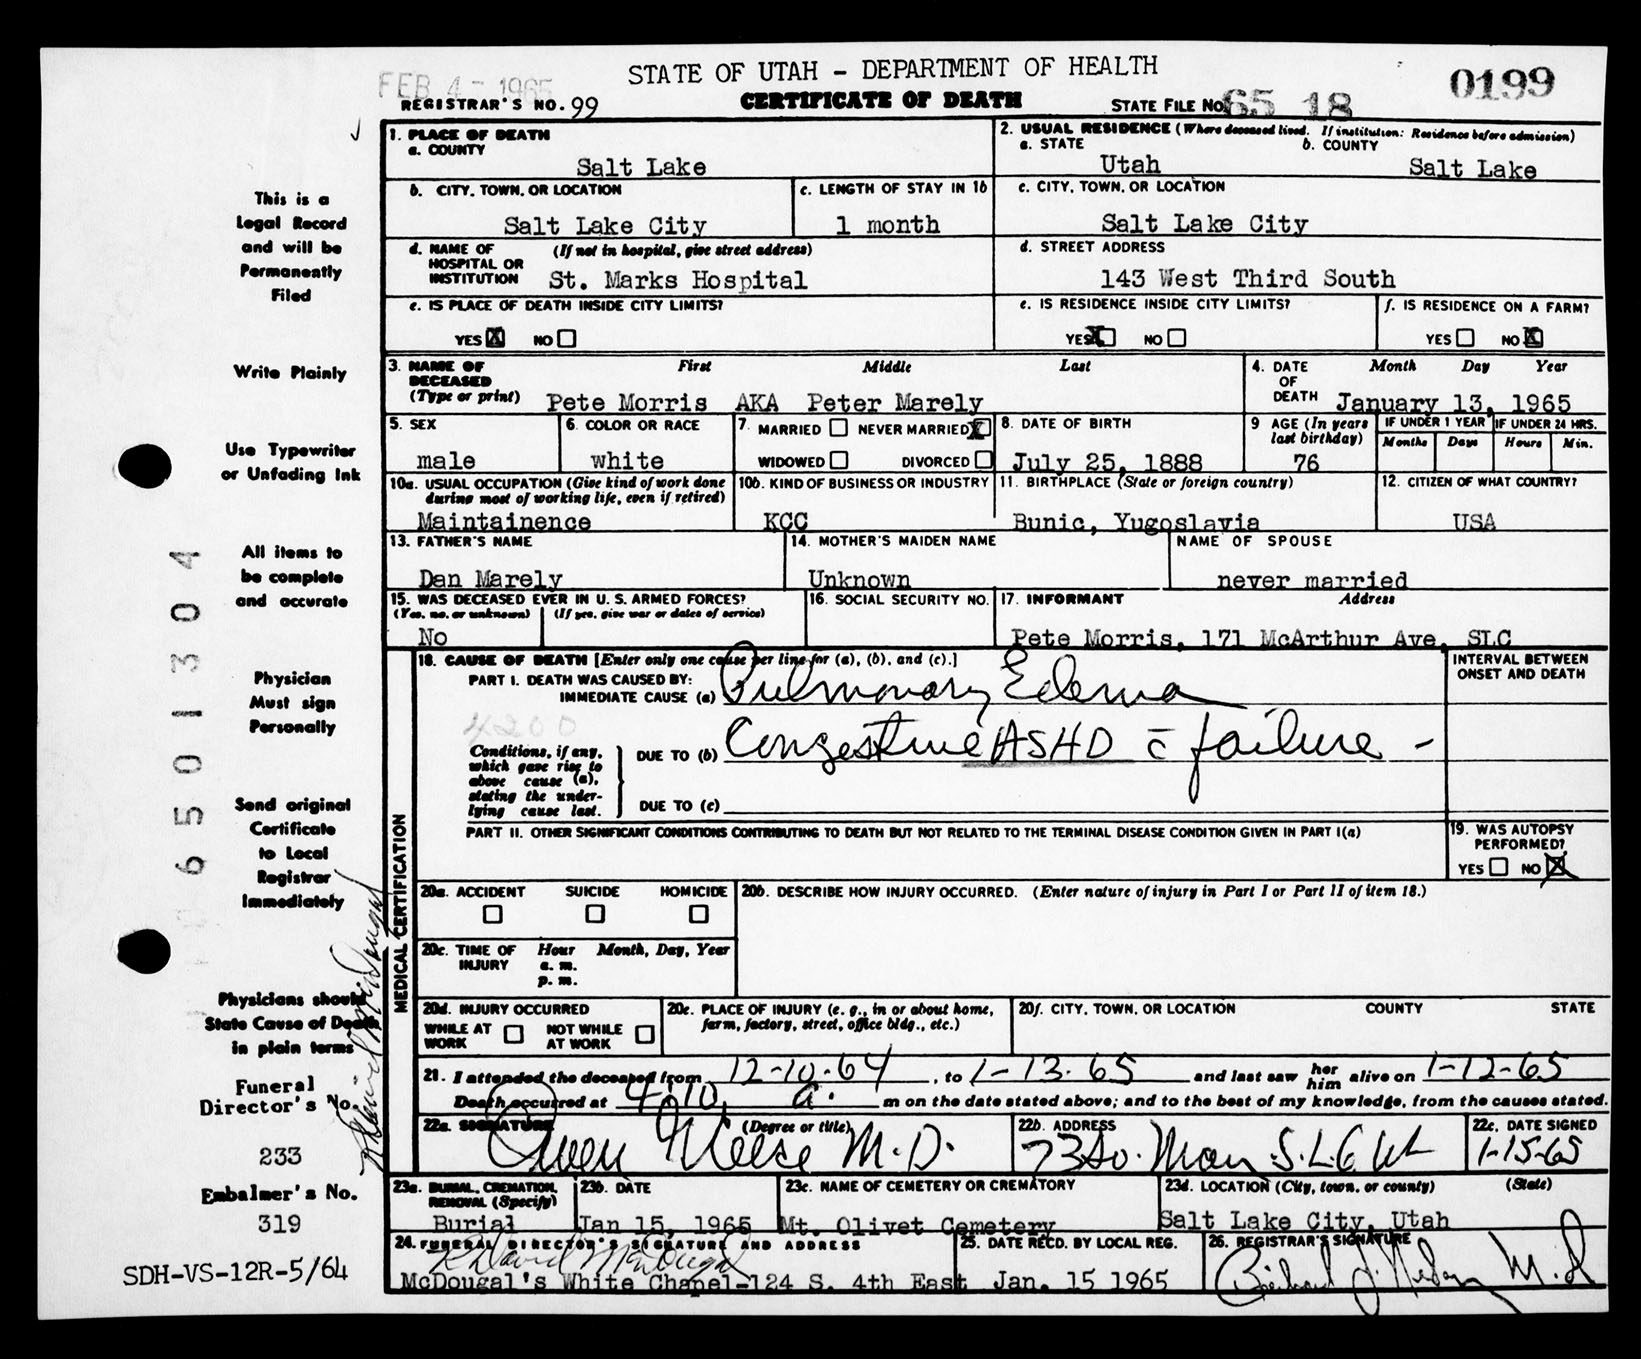 STATE OF UTAH - DEPARTMENT OF HEALTH
FEB 4 - 1965
0199
REGISTRAR'S NO. 99
CERTIFICATE OF DEATH
STATE FILE NO. 65 18
This is a
Legal Record
and will be
Permanently
Filed
Write Plainly
Use Typewriter
or Unfading Ink
All items to
be complete
and accurate
Physician
Must sign
Personally
Send original
Certificate
to Local
Registrar
Immediately
Physicians should
State Cause of Death
in plain terms
Funeral
Director's No.
233
Embalmer's No.
319
SDH-VS-12R-5/64
6501304
1. PLACE OF DEATH
a. COUNTY
Salt Lake
2. USUAL RESIDENCE (Where deceased lived. If institution: Residence before admission)
a. STATE
Utah
b. COUNTY
Salt Lake
b. CITY, TOWN, OR LOCATION
Salt Lake City
c. LENGTH OF STAY IN 1b
1 month
c. CITY, TOWN, OR LOCATION
Salt Lake City
d. NAME OF HOSPITAL OR INSTITUTION
(If not in hospital, give street address)
St. Marks Hospital
d. STREET ADDRESS
143 West Third South
e. IS PLACE OF DEATH INSIDE CITY LIMITS?
YES X NO
e. IS RESIDENCE INSIDE CITY LIMITS?
YES X NO
f. IS RESIDENCE ON A FARM?
YES NO X
3. NAME OF DECEASED
(Type or print)
First Middle Last
Pete Morris AKA Peter Marely
4. DATE OF DEATH
Month Day Year
January 13, 1965
5. SEX
male
6. COLOR OR RACE
white
7. MARRIED NEVER MARRIED X
WIDOWED DIVORCED
8. DATE OF BIRTH
July 25, 1888
9 AGE (In years last birthday)
76
IF UNDER 1 YEAR
Months Days
IF UNDER 24 HRS.
Hours Min.
10a. USUAL OCCUPATION (Give kind of work done
during most of working life, even if retired)
Maintainence
10b. KIND OF BUSINESS OR INDUSTRY
KCC
11. BIRTHPLACE (State or foreign country)
Bunic, Yugoslavia
12. CITIZEN OF WHAT COUNTRY?
USA
13. FATHER'S NAME
Dan Marely
14. MOTHER'S MAIDEN NAME
Unknown
NAME OF SPOUSE
never married
15. WAS DECEASED EVER IN U. S. ARMED FORCES?
(Yes, no, or unknown) (If yes, give war or dates of service)
No
16. SOCIAL SECURITY NO.
17. INFORMANT Address
Pete Morris, 171 McArthur Ave, SLC
MEDICAL CERTIFICATION
18. CAUSE OF DEATH [Enter only one cause per line for (a), (b), and (c).]
INTERVAL BETWEEN
ONSET AND DEATH
PART I. DEATH WAS CAUSED BY:
IMMEDIATE CAUSE (a) Pulmonary Edema
4200
Conditions, if any,
which gave rise to
above cause (a),
stating the under-
lying cause last.
DUE TO (b) Congestive ASHD c̄ failure -
DUE TO (c)
PART II. OTHER SIGNIFICANT CONDITIONS CONTRIBUTING TO DEATH BUT NOT RELATED TO THE TERMINAL DISEASE CONDITION GIVEN IN PART I(a)
19. WAS AUTOPSY
PERFORMED?
YES NO X
20a. ACCIDENT SUICIDE HOMICIDE
20b. DESCRIBE HOW INJURY OCCURRED. (Enter nature of injury in Part I or Part II of item 18.)
20c. TIME OF INJURY
Hour Month, Day, Year
a. m.
p. m.
20d. INJURY OCCURRED
WHILE AT WORK NOT WHILE AT WORK
20e. PLACE OF INJURY (e. g., in or about home,
farm, factory, street, office bldg., etc.)
20f. CITY, TOWN, OR LOCATION COUNTY STATE
21. I attended the deceased from 12-10-64, to 1-13-65 and last saw her him alive on 1-12-65
Death occurred at 4:10 a. m on the date stated above; and to the best of my knowledge, from the causes stated.
22a. SIGNATURE (Degree or title)
Owen Reese M.D.
22b. ADDRESS
S.L.C.
22c. DATE SIGNED
1-15-65
23a. BURIAL, CREMATION,
REMOVAL (Specify)
Burial
23b. DATE
Jan 15, 1965
23c. NAME OF CEMETERY OR CREMATORY
Mt. Olivet Cemetery
23d. LOCATION (City, town, or county) (State)
Salt Lake City, Utah
24. FUNERAL DIRECTOR'S SIGNATURE AND ADDRESS
David McDougal
McDougal's White Chapel-124 S. 4th East
25. DATE RECD. BY LOCAL REG.
Jan. 15 1965
26. REGISTRAR'S SIGNATURE
David McDougal